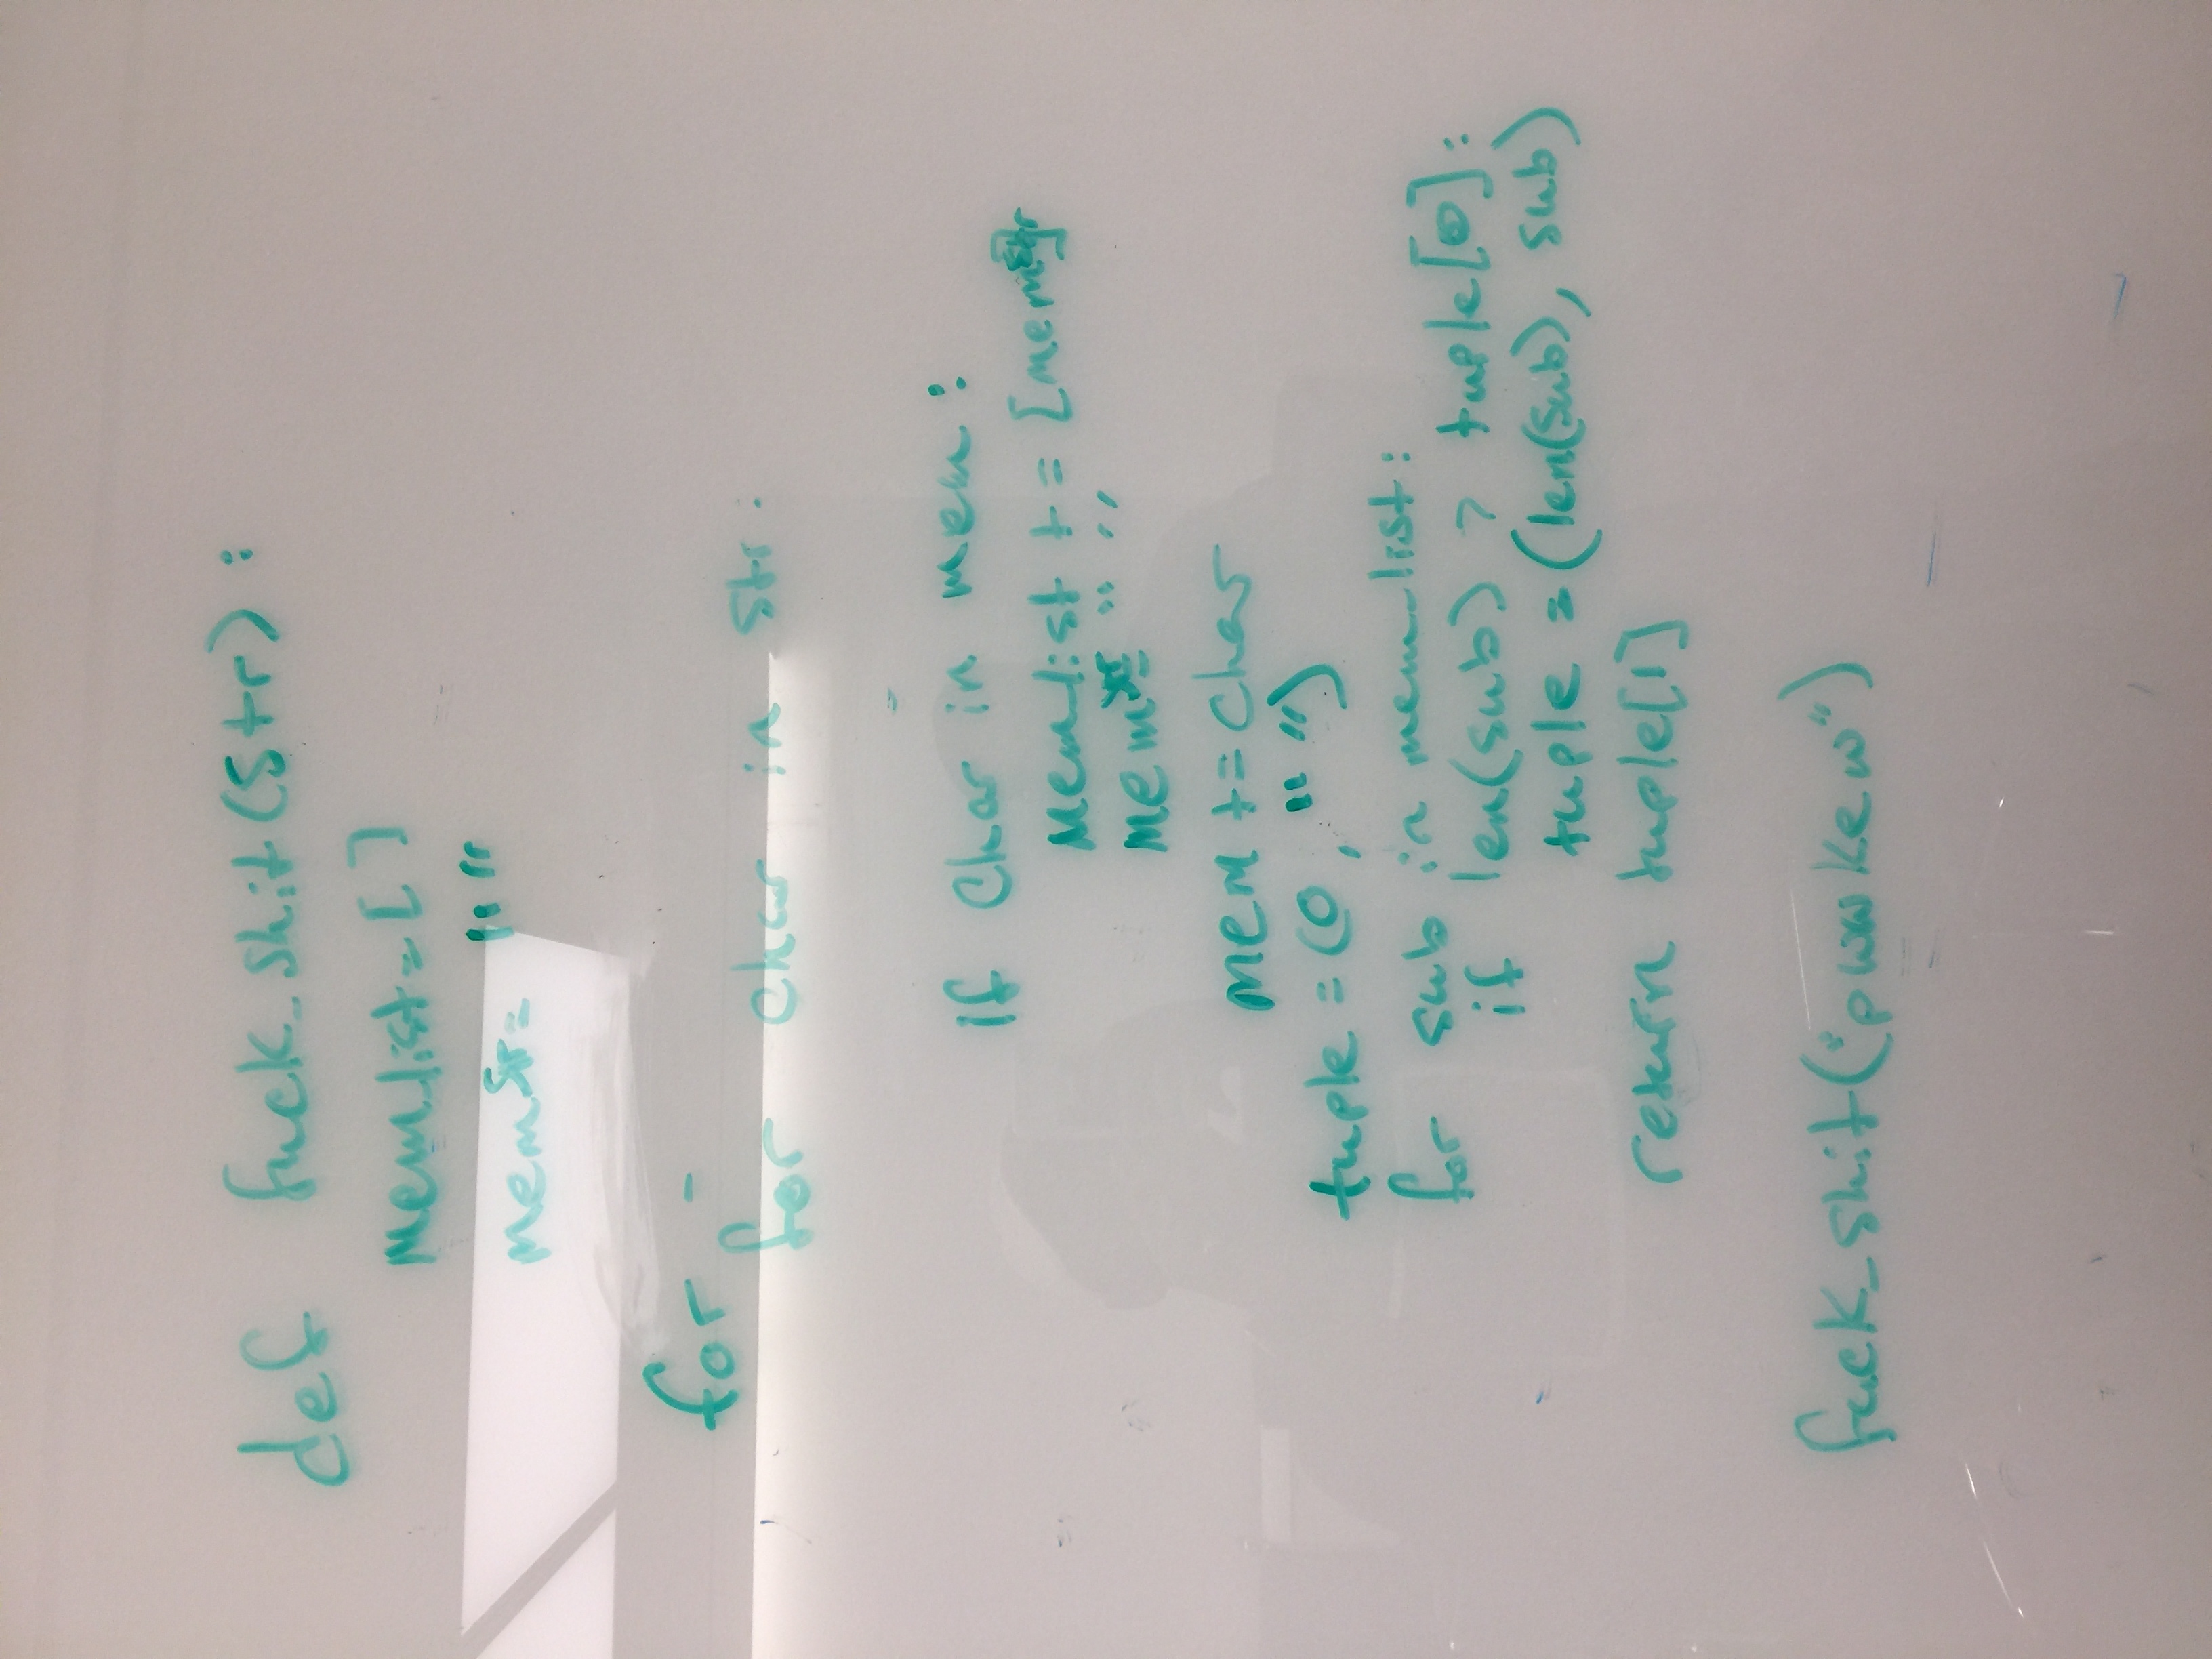 def fuck_shit(str):
mem_list=[]
memstr= " "
for -
for char in str:
if char in mem:
mem_list += [memstr]
memstr= " "
mem += char
tuple = (0, " ")
for sub in mem_list:
if len(sub) > tuple[0]:
tuple = (len(sub), sub)
return tuple[1]
fuck_shit("pwwkew")